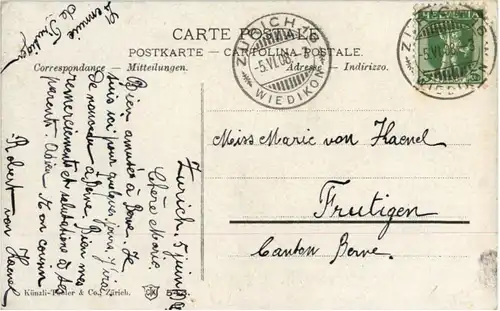 CARTE POSTALE
POSTKARTE — CARTOLINA POSTALE.
Correspondance — Mitteilungen.
Adresse — Indirizzo.
ZÜRICH 19
-5.VI.08.
WIEDIKON
ZÜRICH 19
-5.VI.08.
WIEDIKON
Miss Marie von Haenel
Frutigen
Canton Berne.
Zurich, 5 juin
Chère Marie.
Bien amusés à Berne. Je
suis ici pour quelques jours. J'irai
de nouveau à Berne. Bien mes
remerciements et salutations à tes
parents. Adieu. Mon cousin
Robert von Haenel
de Frutigen
Künzli-Tobler & Co., Zürich.